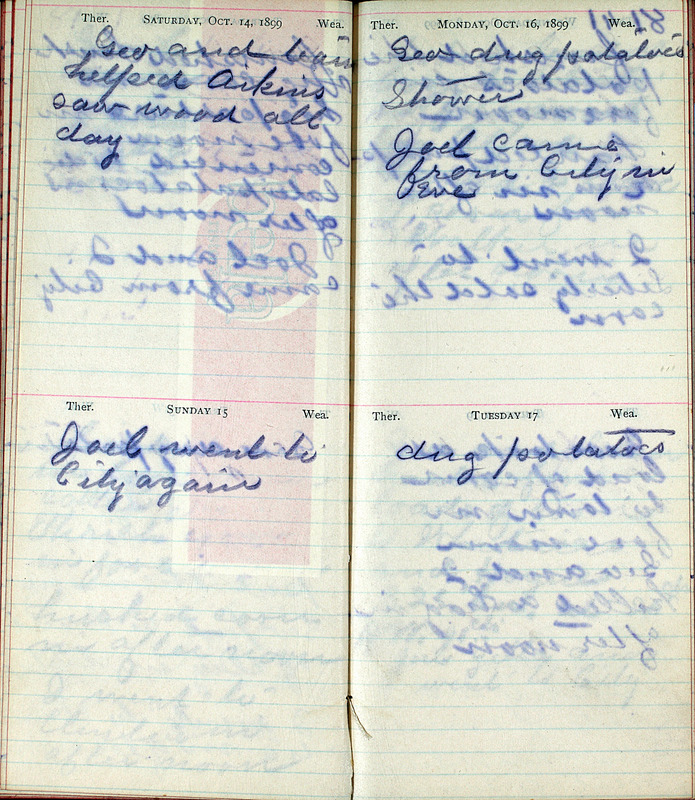 Ther. SATURDAY, OCT. 14, 1899 Wea.
Geo and team
helped Aikins
saw wood all
day
Ther. SUNDAY 15 Wea.
Joel went to
City again
Ther. MONDAY, OCT. 16, 1899 Wea.
Geo dug potatoes
Shower
Joel came
from City in
Eve
Ther. TUESDAY 17 Wea.
dug potatoes